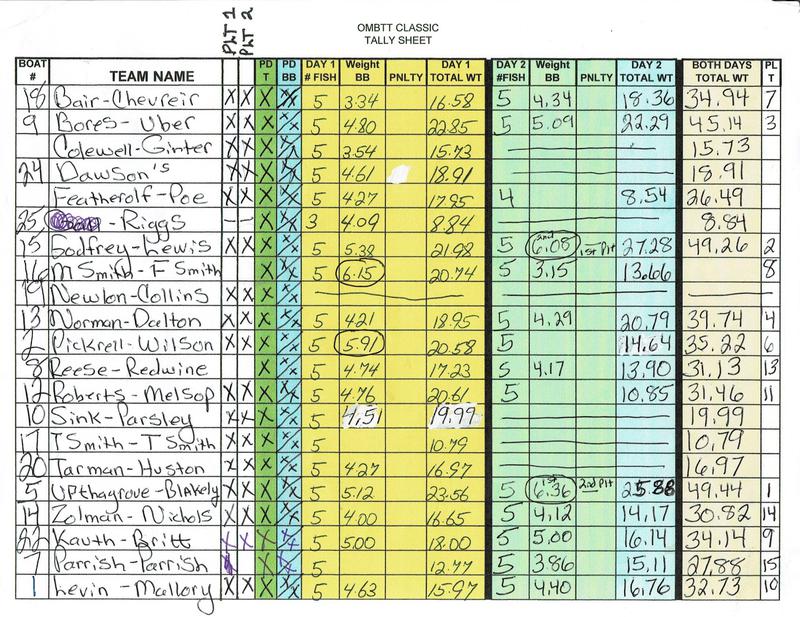 OMBTT CLASSIC
TALLY SHEET
PLT 1 PLT 2
BOAT # TEAM NAME PD T PD BB DAY 1 # FISH Weight BB PNLTY DAY 1 TOTAL WT DAY 2 #FISH Weight BB PNLTY DAY 2 TOTAL WT BOTH DAYS TOTAL WT PL T
18 Bair-Chevreir X X X XX 5 3.34 16.58 5 4.34 18.36 34.94 7
9 Bores-Uber X X X XX 5 4.80 22.85 5 5.09 22.29 45.14 3
Colewell-Ginter X X X XX 5 3.54 15.73 15.73
24 Dawson's X X X XX 5 4.61 18.91 18.91
Featherolf-Poe X X X XX 5 4.27 17.95 4 8.54 26.49
25 -Riggs - - X XX 3 4.09 8.84 8.84
15 Godfrey-Lewis X X X XX 5 5.38 21.98 5 2nd 6.08 1st Plt 27.28 49.26 2
16 M Smith-F Smith X XX 5 6.15 20.74 5 3.15 13.66 8
19 Newton-Collins X X X XX
13 Norman-Dalton X X X XX 5 4.21 18.95 5 4.29 20.79 39.74 4
2 Pickrell-Wilson X X X XX 5 5.91 20.58 5 14.64 35.22 6
8 Reese-Redwine X XX 5 4.74 17.23 5 4.17 13.90 31.13 13
12 Roberts-Melsop X X X XX 5 4.76 20.61 5 10.85 31.46 11
10 Sink-Parsley X X X XX 5 4.51 19.99 19.99
17 T Smith-T Smith X X X XX 5 10.79 10.79
20 Tarman-Huston X X X XX 5 4.27 16.97 16.97
5 Upthagrove-Blakely X X X XX 5 5.12 23.56 5 1st 6.36 2nd Plt 25.88 49.44 1
14 Zolman-Nichols X X X XX 5 4.00 16.65 5 4.12 14.17 30.82 14
22 Kauth-Britt X X X XX 5 5.00 18.00 5 5.00 16.14 34.14 9
7 Parrish-Parrish X X XX 5 12.77 5 3.86 15.11 27.88 15
1 Levin-Mallory X X X XX 5 4.63 15.97 5 4.40 16.76 32.73 10